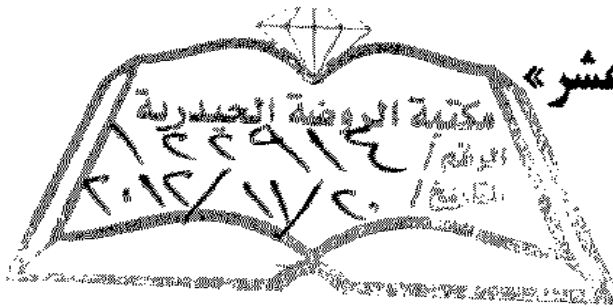 عشر »
مكتبة الروضة الحيدرية
الرقم / ١٢٢٩١٤
التاريخ / ٢٠١٢/١١/٢٠